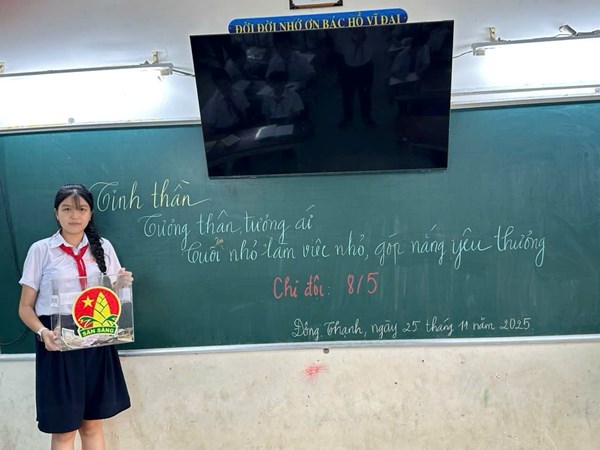 ĐỜI ĐỜI NHỚ ƠN BÁC HỒ VĨ ĐẠI
Tinh thần
Tương thân, tương ái
Tuổi nhỏ làm việc nhỏ, góp nắng yêu thương
Chi đội: 8/5
Đông Thạnh, ngày 25 tháng 11 năm 2025
SẴN SÀNG